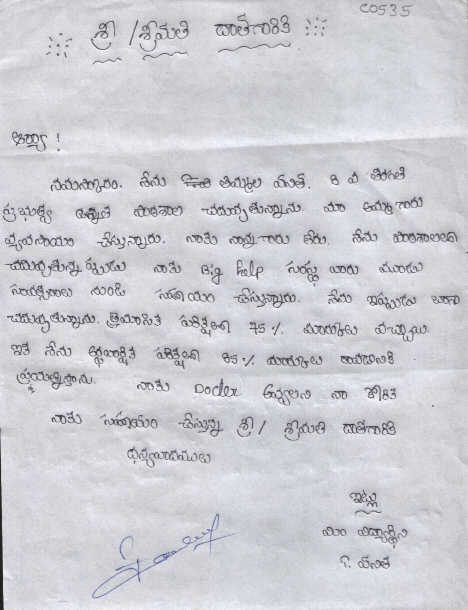 C0535
శ్రీ /శ్రీమతి దాతగారికి
ఆర్యా !
నమస్కారం. నేను తిమ్మల 8 వ తరగతి
ప్రభుత్వ ఉన్నత పాఠశాల చదువుతున్నాను. మా అమ్మగారు
వ్యవసాయం చేస్తున్నారు. నాకు నాన్న గారు లేరు. నేను పాఠశాలలో
చదువుతున్నప్పుడు నాకు Big help సంస్థ వారు మూడు
సంవత్సరాలు నుండి సహాయం చేస్తున్నారు. నేను ఇప్పుడు బాగా
చదువుతున్నాను. త్రైమాసిక పరీక్షలలో 75 % మార్కులు వచ్చాయి.
ఇక నేను అర్ధవార్షిక పరీక్షలలో 85 % మార్కులు రావడానికి
ప్రయత్నిస్తాను. నాకు Docter అవ్వాలని నా కోరిక
నాకు సహాయం చేస్తున్న శ్రీ / శ్రీమతి దాతగారికి
ధన్యవాదములు
ఇట్లు
మీ విద్యార్థిని